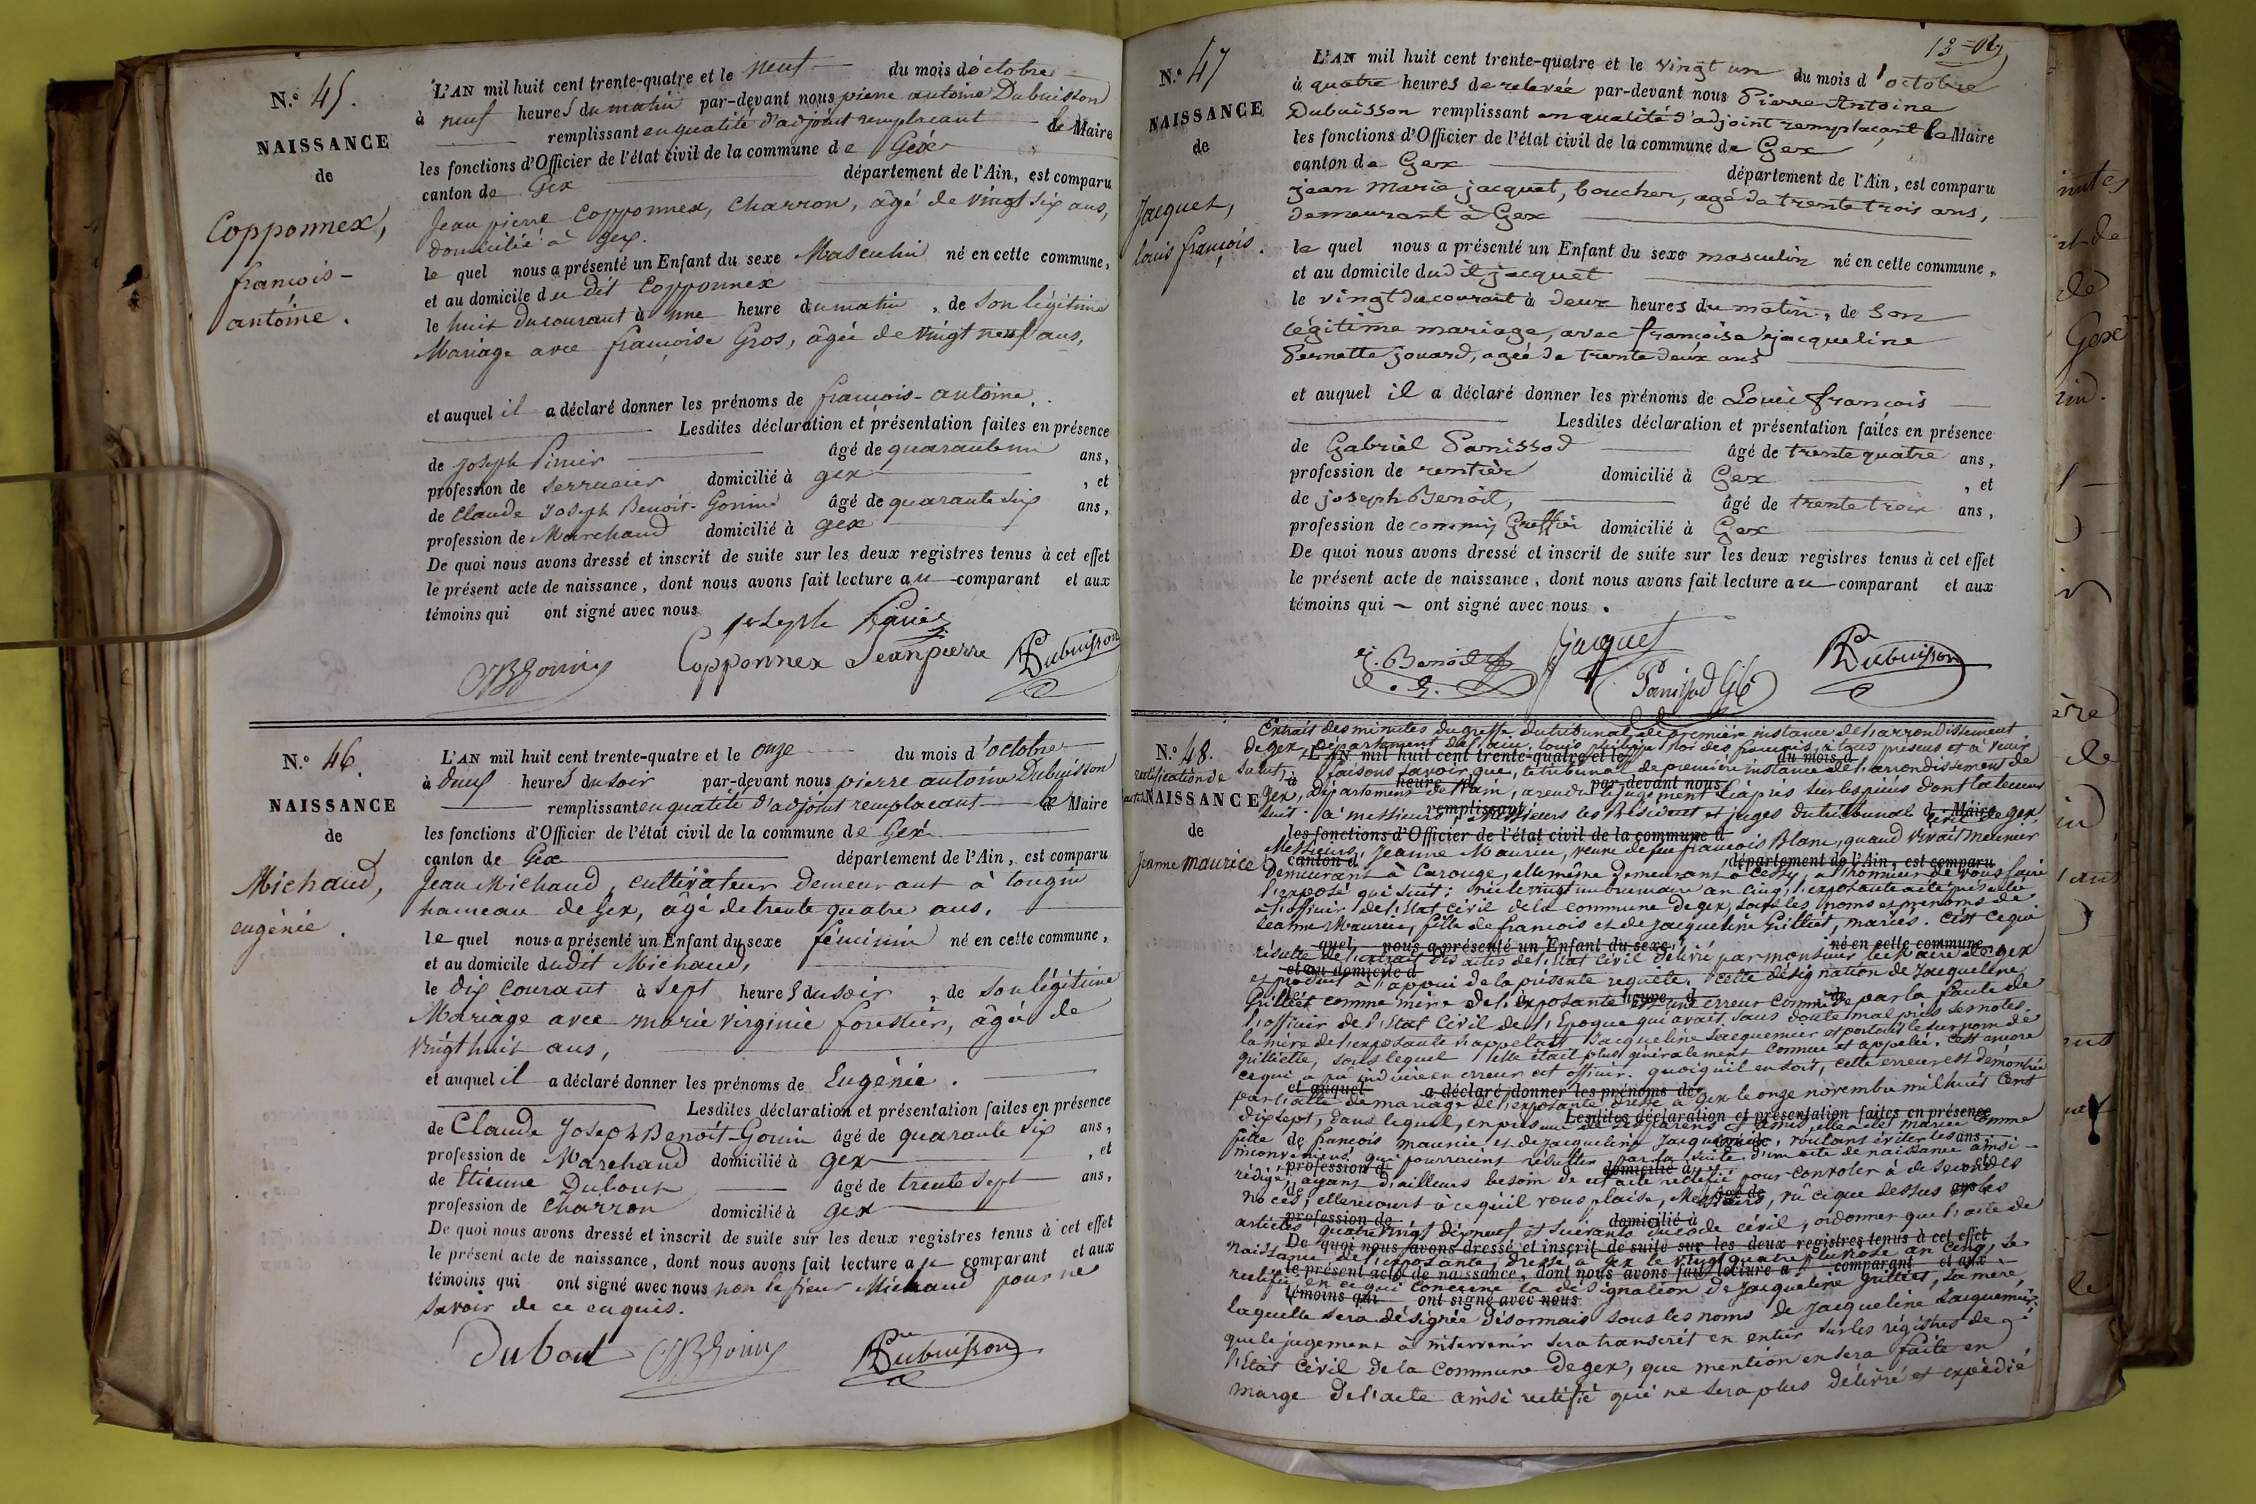 N.º 45.
NAISSANCE
de
Copponnex,
françois-
antoine.
L'AN mil huit cent trente-quatre et le neuf du mois d'octobre
à neuf heures du matin par-devant nous pierre antoine Dubuisson
remplissant en qualité d'adjoint remplacant le Maire
les fonctions d'Officier de l'état civil de la commune de Gex
canton de Gex département de l'Ain, est comparu
Jean pierre Copponnex, Charron, âgé de vingt six ans,
domicilié à gex.
le quel nous a présenté un Enfant du sexe Masculin né en cette commune,
et au domicile du dit Copponnex
le huit du courant à une heure du matin, de son légitime
Mariage avec françoise Gros, âgée de vingt neuf ans,
et auquel il a déclaré donner les prénoms de françois-antoine.
Lesdites déclaration et présentation faites en présence
de Joseph âgé de quarante un ans,
profession de Serrurier domicilié à gex, et
de Claude Joseph Benoit-Gonin âgé de quarante six ans,
profession de Marchand domicilié à gex
De quoi nous avons dressé et inscrit de suite sur les deux registres tenus à cet effet
le présent acte de naissance, dont nous avons fait lecture au comparant et aux
témoins qui ont signé avec nous
Joseph
Copponnex Jeanpierre Dubuisson
N.º 46.
NAISSANCE
de
Michaud,
eugénie.
L'AN mil huit cent trente-quatre et le onze du mois d'octobre
à deux heures du soir par-devant nous pierre antoine Dubuisson
remplissant en qualité d'adjoint remplacant le Maire
les fonctions d'Officier de l'état civil de la commune de Gex
canton de Gex département de l'Ain, est comparu
Jean Michaud, cultivateur demeurant à tougin
hameau de Gex, âgé de trente quatre ans.
le quel nous a présenté un Enfant du sexe féminin né en cette commune,
et au domicile dudit Michaud,
le dix courant à sept heures du soir, de son légitime
Mariage avec marie virginie forestier, âgée de
vingt huit ans,
et auquel il a déclaré donner les prénoms de Eugénie.
Lesdites déclaration et présentation faites en présence
de Claude Joseph Benoît-Gonin âgé de quarante six ans,
profession de Marchand domicilié à gex, et
de Etienne Dubout âgé de trente sept ans,
profession de Charron domicilié à gex
De quoi nous avons dressé et inscrit de suite sur les deux registres tenus à cet effet
le présent acte de naissance, dont nous avons fait lecture au comparant et aux
témoins qui ont signé avec nous non le sieur Michaud pour ne
savoir de ce enquis.
Dubout Dubuisson
N.º 47
NAISSANCE
de
Jacquet,
louis françois.
L'AN mil huit cent trente-quatre et le vingt un du mois d'octobre
à quatre heures de relevée par-devant nous Pierre Antoine
Dubuisson remplissant en qualité d'adjoint remplaçant le Maire
les fonctions d'Officier de l'état civil de la commune de Gex
canton de Gex département de l'Ain, est comparu
jean marie jacquet, boucher, agé de trente trois ans,
demeurant à Gex
le quel nous a présenté un Enfant du sexe masculin né en cette commune,
et au domicile dudit jacquet
le vingt du courant à deux heures du matin, de son
légitime mariage, avec françoise jacqueline
Pernette jouard, agée de trente deux ans
et auquel il a déclaré donner les prénoms de Louis françois
Lesdites déclaration et présentation faites en présence
de Gabriel Panissod âgé de trente quatre ans,
profession de rentier domicilié à Gex, et
de joseph Benoit, âgé de trente trois ans,
profession de commis Greffier domicilié à Gex
De quoi nous avons dressé et inscrit de suite sur les deux registres tenus à cet effet
le présent acte de naissance, dont nous avons fait lecture au comparant et aux
témoins qui ont signé avec nous.
j. Benoit Jacquet
Panissod Dubuisson
N.º 48.
rectification de
NAISSANCE
de
Jeanne maurice
Extrait des minutes du greffe du tribunal de première instance de l'arrondissement
de gex, département de l'ain. louis philippe Roi des français, à tous présens et à venir
L'AN mil huit cent trente-quatre et le du mois d
Salut, faisons savoir que, le tribunal de première instance de l'arrondissement de
à heure par-devant nous
gex, département de l'ain, a rendu le jugement ci après sur les pièces dont la teneur
remplissant Maire
suit: à messieurs les Président et juges du tribunal civil de gex
les fonctions d'Officier de l'état civil de la commune d
Messieurs, Jeanne Maurice, veuve de feu françois Blanc, quand vivait meunier
canton d département de l'Ain, est comparu
Demeurant à Carouge, elle même demeurant à Cessy, a l'honneur de vous faire
l'exposé qui suit: née le vingt un brumaire an cinq, l'exposante a été présentée
à l'officier de l'Etat civil de la commune de gex, sous les noms et prénoms de
Jeanne Maurice, fille de françois et de Jacqueline Guilliet, mariés. C'est ce qui
quel nous a présenté un Enfant du sexe né en cette commune
résulte de l'extrait des actes de l'Etat civil délivré par monsieur le Maire de gex
et au domicile d
et produit à l'appui de la présente requête. Cette désignation de Jacqueline
heure d de
Guilliet comme mère de l'exposante est une erreur commise par la faute de
l'officier de l'Etat civil de l'Epoque qui avait sans doute mal pris ses notes.
la mère de l'exposante s'appelait Jacqueline Jacquemier et portait le surnom de
quilliette, sous lequel elle était plus généralement connue et appelée. C'est encore
ce qui a pu induire en erreur cet officier. quoiqu'il en soit, cette erreur est démontrée
et auquel a déclaré donner les prénoms de
par l'acte de mariage de l'exposante dressé à gex le onze novembre mil huit cent
Lesdites déclaration et présentation faites en présence
dix sept, dans lequel, en présence de ses parens et amis elle a été mariée comme
fille de françois maurice et de jacqueline Jacquemier, voulant éviter les
inconvéniens qui pourraient résulter par la suite d'un acte de naissance ainsi
profession d domicilié à
rédigé, ayant d'ailleurs besoin de cet acte rectifié pour convoler à de secondes
noces, elle recourt à ce qu'il vous plaise, Messieurs, vû ce que dessus et les
profession de domicilié à
articles quatre vingt dix neuf et suivants du code civil, ordonner que l'acte de
De quoi nous avons dressé et inscrit de suite sur les deux registres tenus à cet effet
naissance de l'exposante, dressé à gex le vingt quatre an cinq, se
le présent acte de naissance, dont nous avons fait lecture a comparant et aux
rectifié en ce qui concerne la désignation de Jacqueline Guilliet, sa mère,
témoins qui ont signé avec nous
laquelle sera désignée désormais sous les noms de Jacqueline Jacquemier.
que le jugement à intervenir sera transcrit en entier sur les régistres de
l'Etat civil de la commune de gex, que mention en sera faite en
marge de l'acte ainsi rectifié qui ne sera plus délivré et expédié